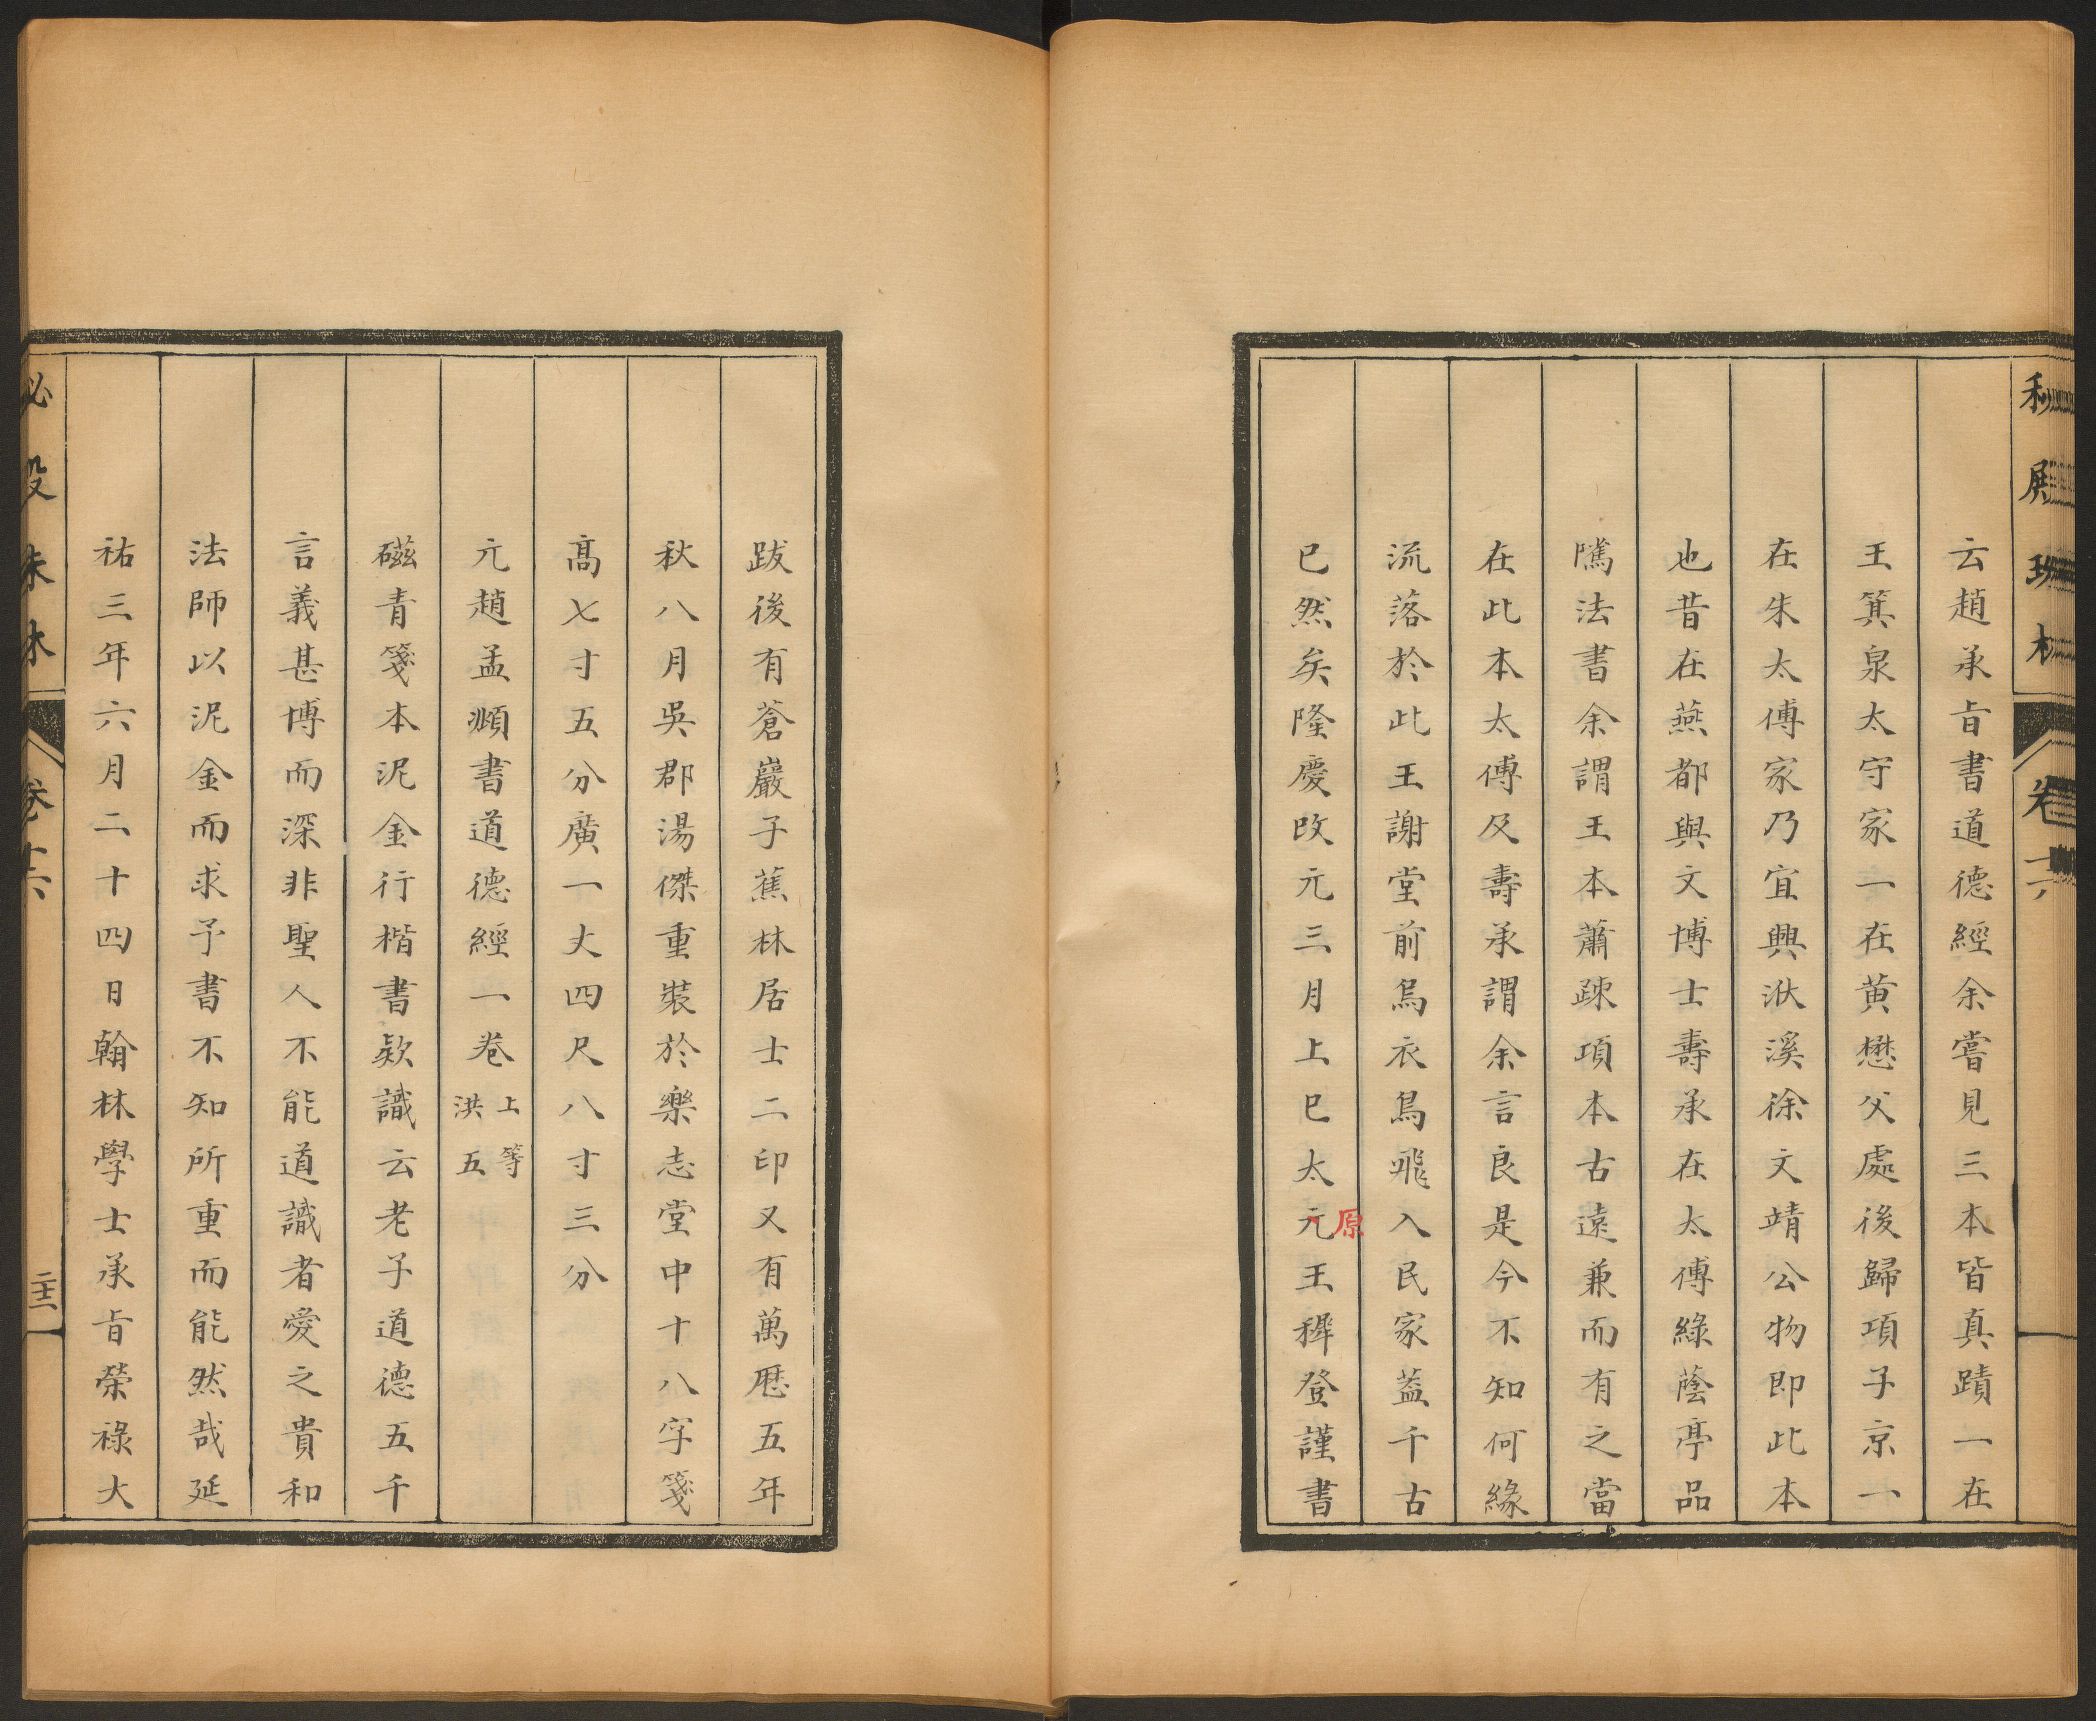 云趙承旨書道德經余嘗見三本皆真蹟一在
王箕泉太守家一在黄懋父處後歸項子京一
在朱太傅家乃宜興洑溪徐文靖公物即此本
也昔在燕都與文博士壽承在太傅綠蔭亭品
隲法書余謂王本蕭疎項本古遠兼而有之當
在此本太傅及壽承謂余言良是今不知何緣
流落於此王謝堂前烏衣鳥飛入民家葢千古
已然矣隆慶改元三月上巳太元王穉登謹書
原
跋後有蒼巖子蕉林居士二印又有萬厯五年
秋八月吳郡湯傑重裝於樂志堂中十八字箋
高七寸五分廣一丈四尺八寸三分
元趙孟頫書道德經一卷 上等
洪五
磁青箋本泥金行楷書欵識云老子道德五千
言義甚博而深非聖人不能道識者愛之貴和
法師以泥金而求予書不知所重而能然哉延
祐三年六月二十四日翰林學士承旨榮祿大
卷十六